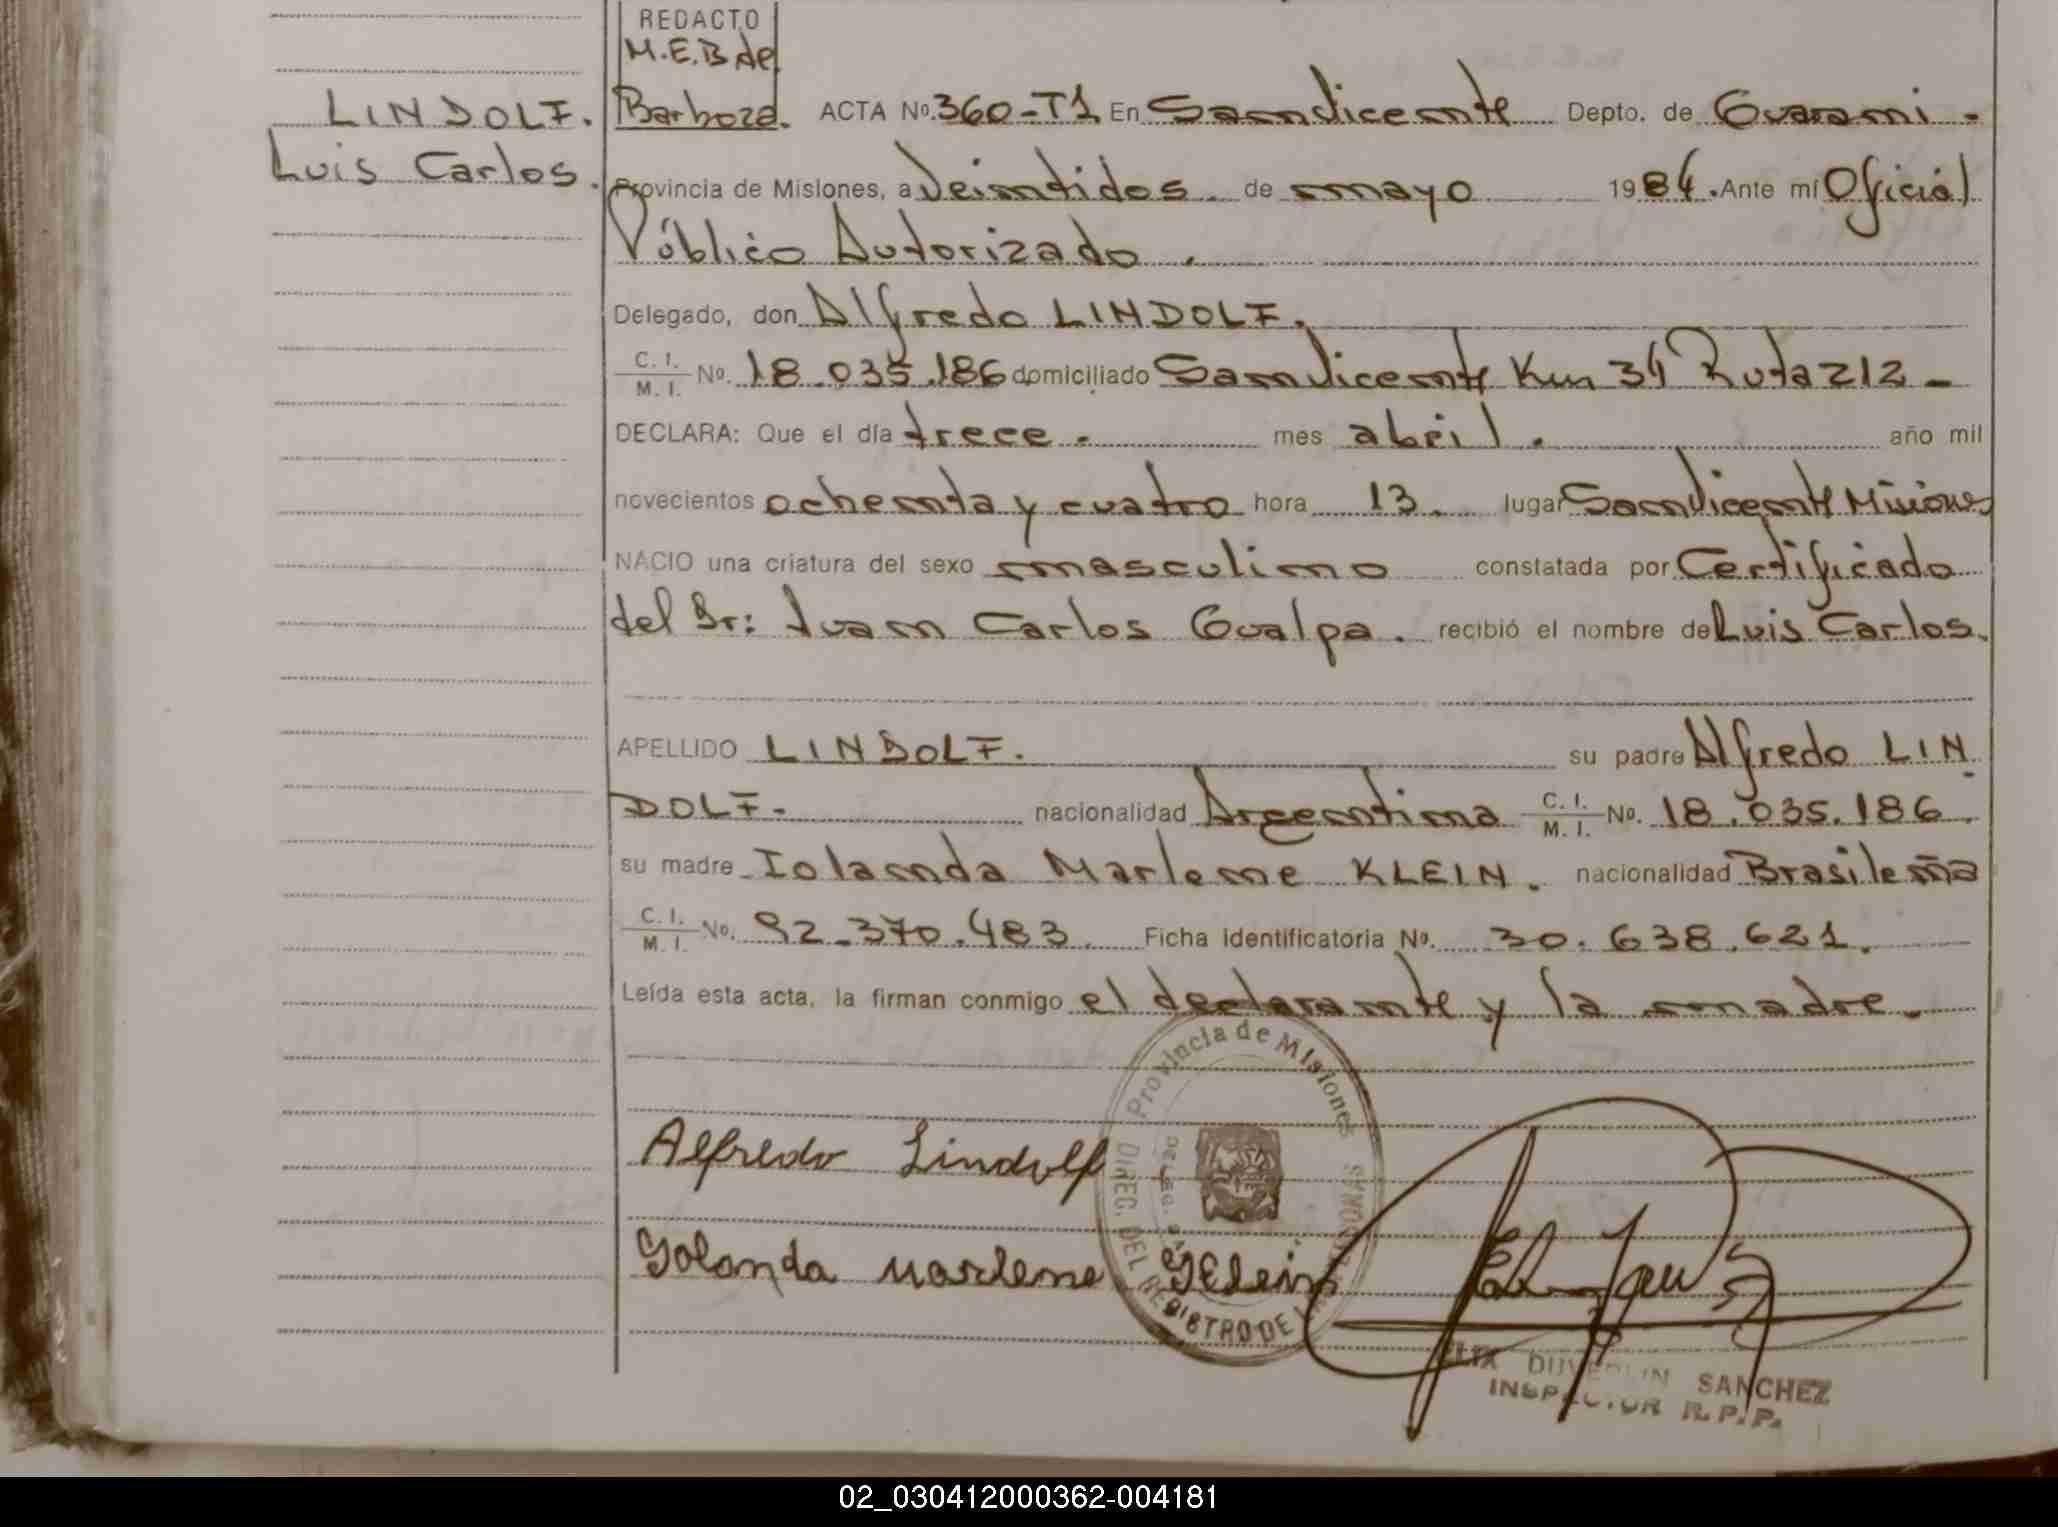 REDACTO
M.E.B de
Barboza.
LINDOLF.
Luis Carlos.
ACTA Nº. 360-T1 En San Vicente Depto. de Guarani.
Provincia de Misiones, a Veintidos de mayo 1984. Ante mí Oficial
Público Autorizado.
Delegado, don Alfredo LINDOLF.
C. I.
M. I. Nº. 18.035.186 domiciliado San Vicente Km 34 Ruta 212 -
DECLARA: Que el día trece. mes abril. año mil
novecientos ochenta y cuatro hora 13. lugar San Vicente Misiones
NACIO una criatura del sexo masculino constatada por Certificado
del Dr: Juan Carlos Gualpa. recibió el nombre de Luis Carlos.
APELLIDO LINDOLF. su padre Alfredo LIN
DOLF. nacionalidad Argentina C. I.
M. I. Nº. 18.035.186.
su madre Iolanda Marlene KLEIN. nacionalidad Brasileña
C. I.
M. I. Nº. 92.370.483. Ficha identificatoria Nº. 30.638.621.
Leída esta acta, la firman conmigo el declarante y la madre.
Provincia de Misiones
DIREC. DEL REGISTRO DE LAS PERSONAS
Alfredo Lindolf
Yolanda Marlene Klein
SANCHEZ
INSPECTOR R.P.P.
02_030412000362-004181